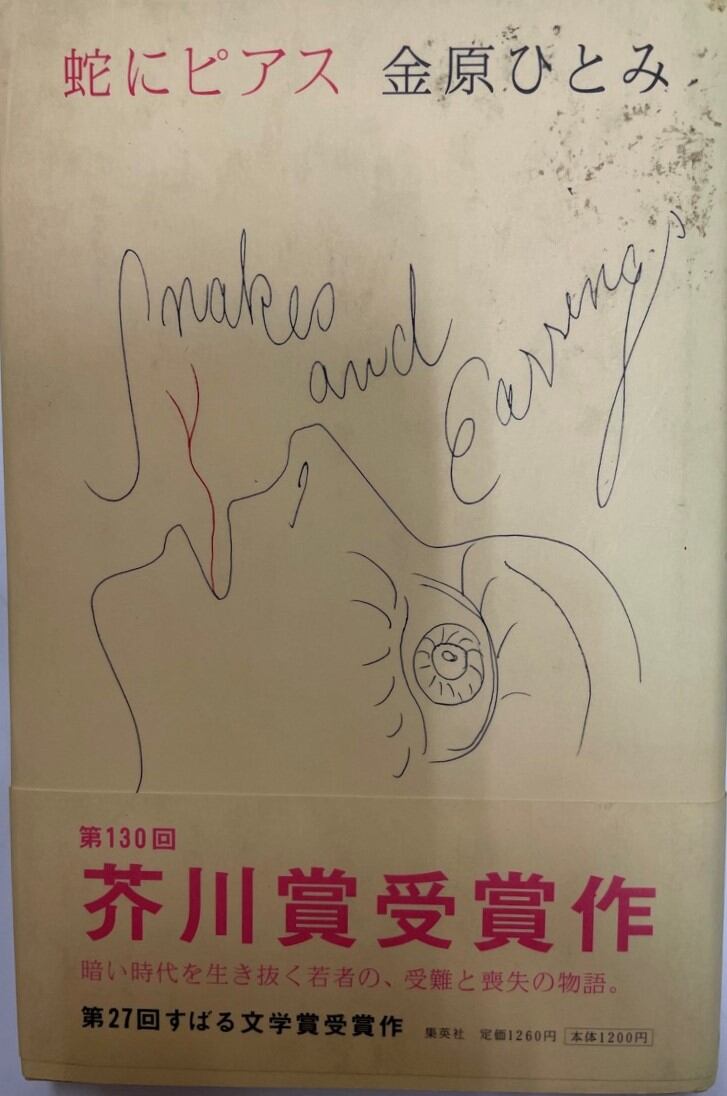 蛇にピアス 金原ひとみ
Snakes
and
Earrings
第130回
芥川賞受賞作
暗い時代を生き抜く若者の、受難と喪失の物語。
第27回すばる文学賞受賞作 集英社 定価1260円 本体1200円